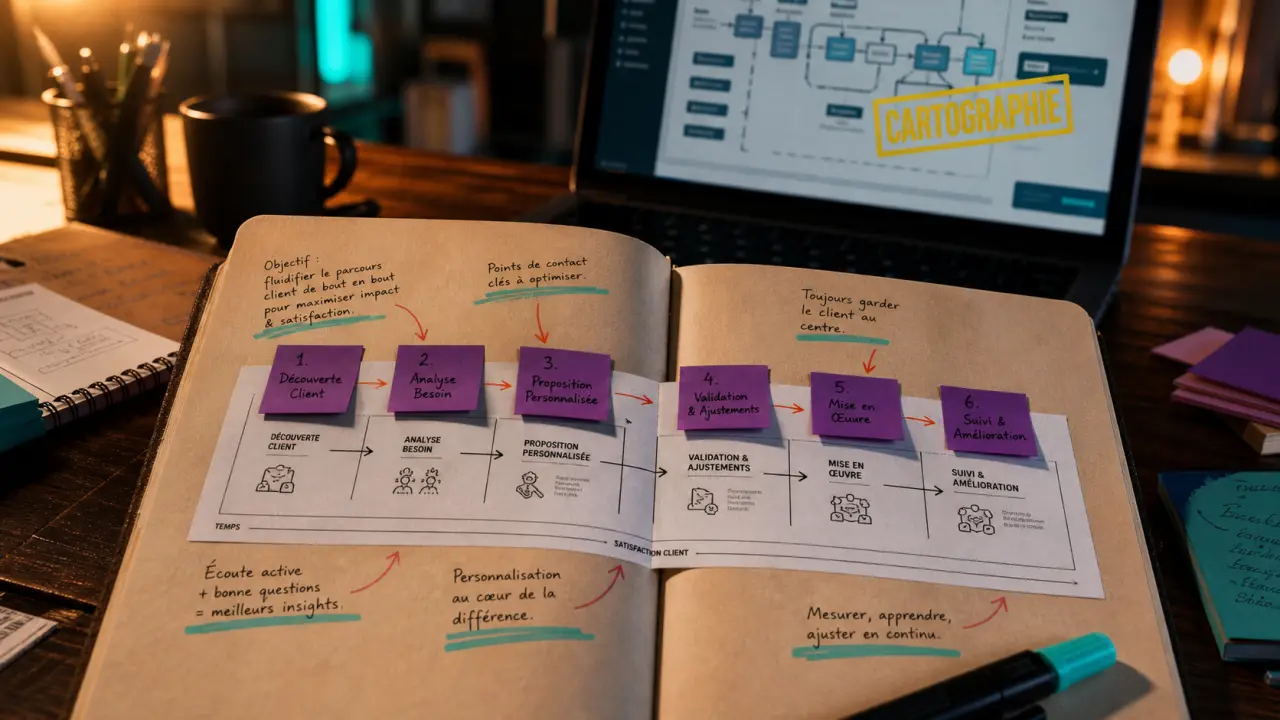 CARTOGRAPHIE
Objectif :
fluidifier le parcours
client de bout en bout
pour maximiser impact
& satisfaction.
Points de contact
clés à optimiser.
Toujours garder
le client au
centre.
1.
Découverte
Client
2.
Analyse
Besoin
3.
Proposition
Personnalisée
4.
Validation
& Ajustements
5.
Mise en
Œuvre
6.
Suivi &
Amélioration
DÉCOUVERTE
CLIENT
ANALYSE
BESOIN
PROPOSITION
PERSONNALISÉE
VALIDATION &
AJUSTEMENTS
MISE EN
ŒUVRE
SUIVI &
AMÉLIORATION
TEMPS
SATISFACTION CLIENT
Écoute active
+ bonne questions
= meilleurs insights.
Personnalisation
au cœur de la
différence.
Mesurer, apprendre,
ajuster en continu.